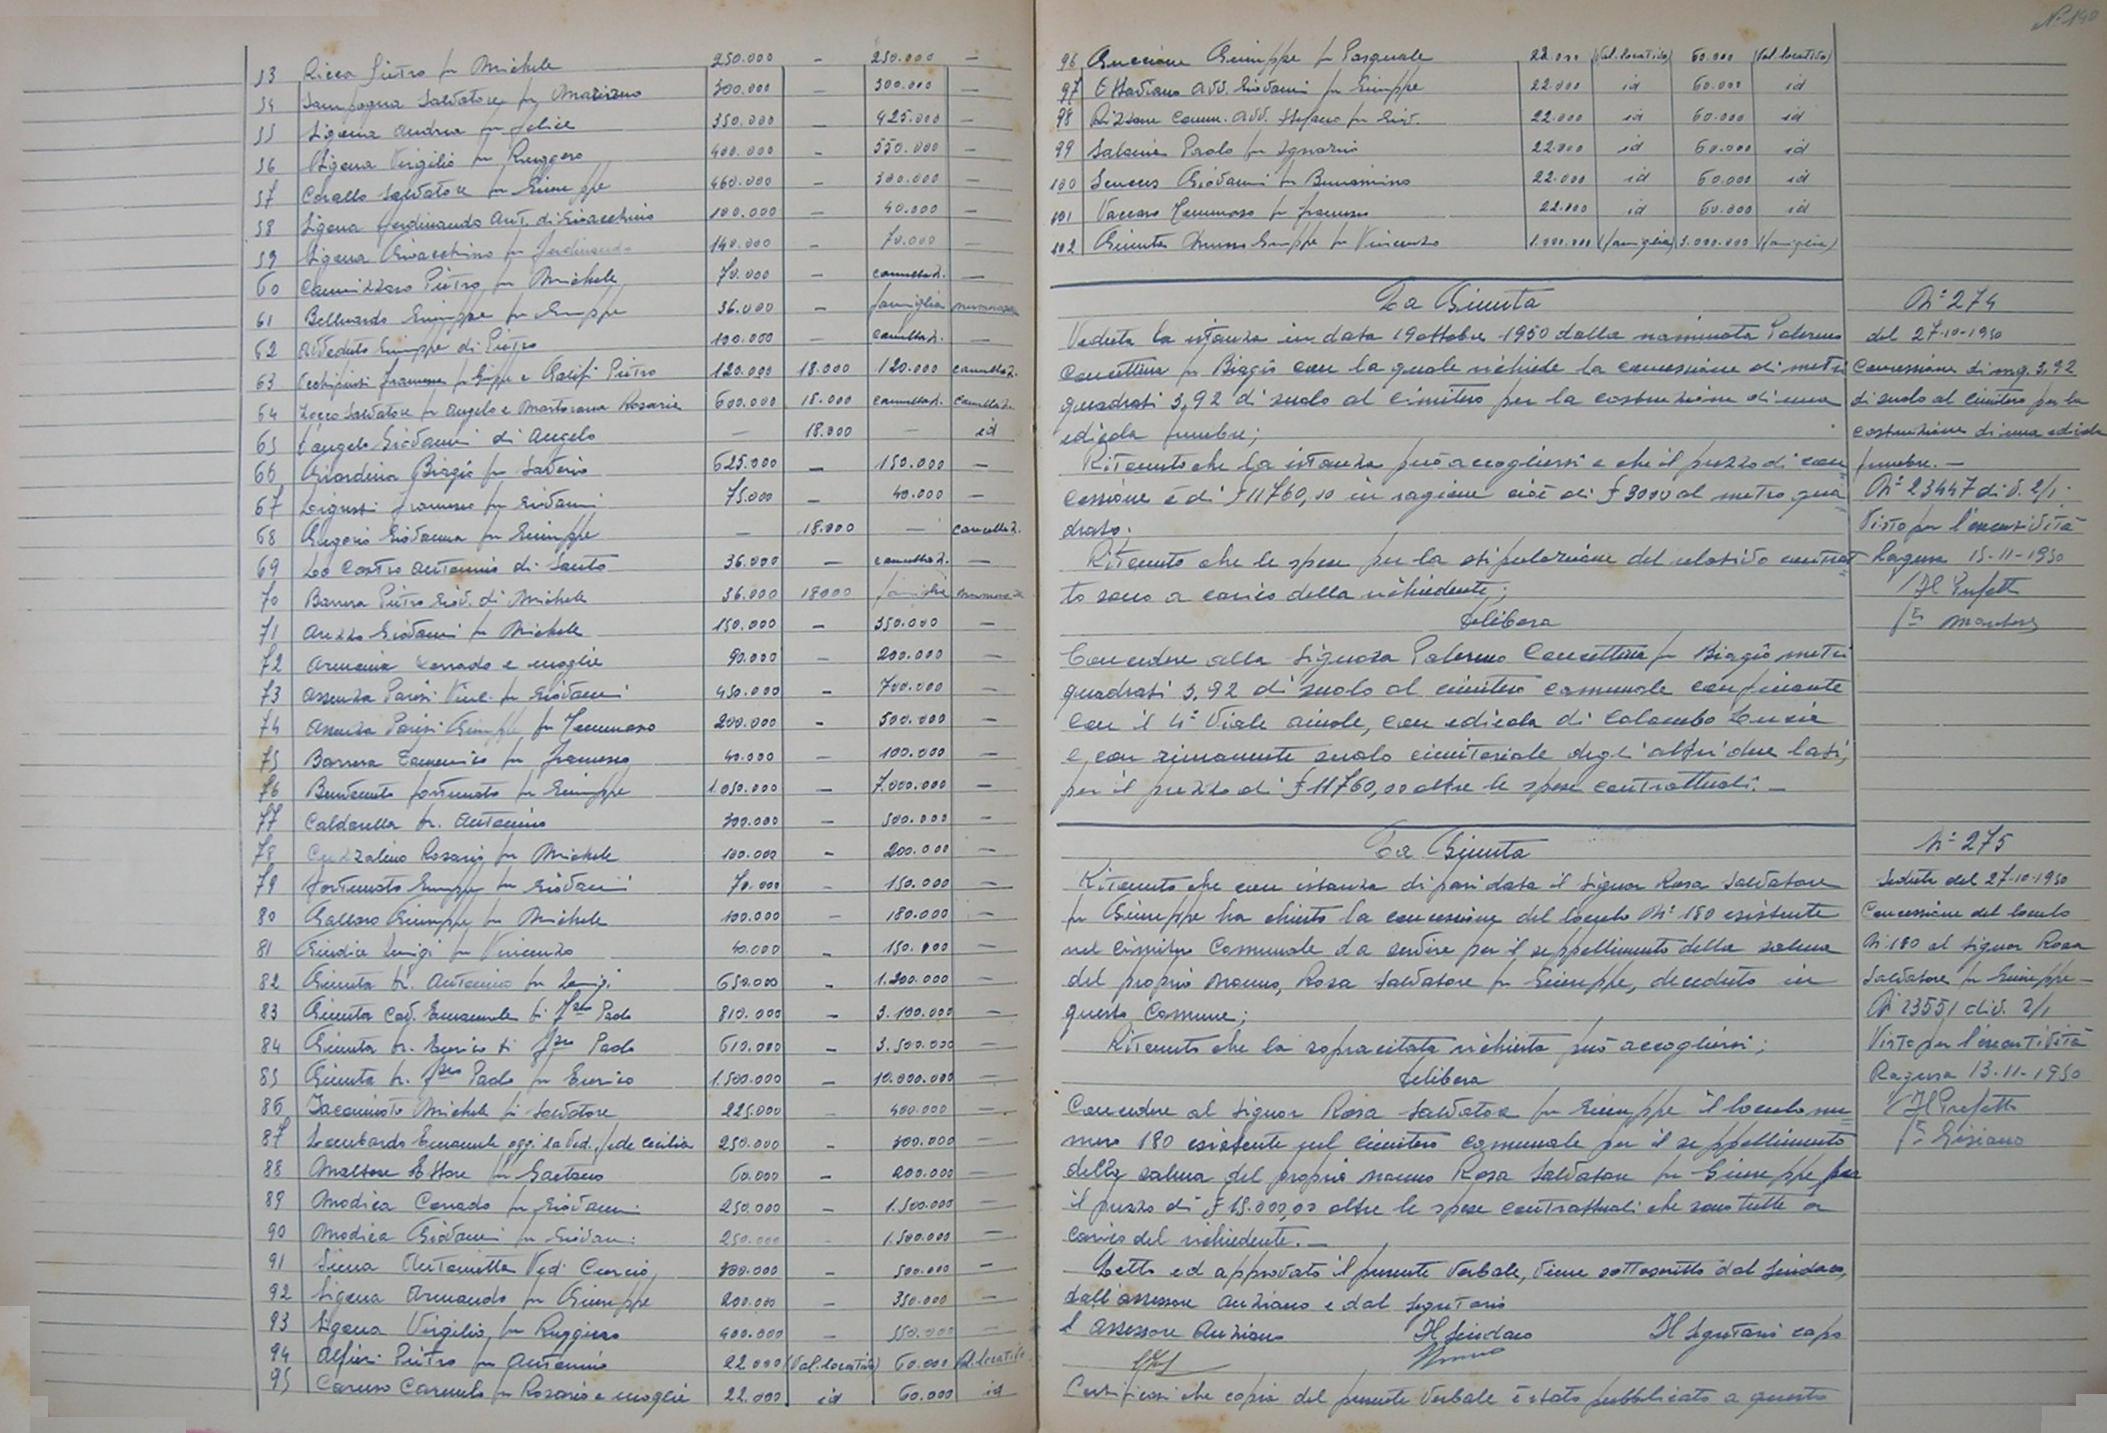 53 Ricca Pietro fu Michele 250.000 — 250.000 —
54 Salvatore fu 300.000 — 300.000 —
55 Ligena Andrea fu Felice 350.000 — 425.000 —
56 Ligena Virgilio fu Ruggero 400.000 — 550.000 —
57 Corallo Salvatore fu Giuseppe 460.000 — 300.000 —
58 Ligena Ferdinando Ant. di Gioacchino 100.000 — 40.000 —
59 Ligena Gioacchino fu Ferdinando 140.000 — 70.000 —
60 Cannizzaro Pietro fu Michele 70.000 — cancellaz. —
61 Belluardo Giuseppe fu Giuseppe 36.000 — famiglia numerosa
62 Giuseppe di Pietro 100.000 — cancellaz. —
63 Occhipinti Francesco fu Gius.pe e Pietro 120.000 18.000 120.000 cancellaz.
64 Salvatore fu Angelo e Martorana Rosaria 600.000 18.000 cancellaz. cancellaz.
65 Giovanni di Angelo — 18.000 — id
66 Giardina Biagio fu Saverio 625.000 — 150.000 —
67 Francesco fu Giovanni 75.000 — 40.000 —
68 Giovanna fu Giuseppe — 18.000 — cancellaz.
69 Lo Castro Antonio di Santo 36.000 — cancellaz. —
70 Barrera Pietro Giov. di Michele 36.000 18000 famiglia numerosa
71 Arezzo Giovanni fu Michele 150.000 — 350.000 —
72 Armenia Corrado e moglie 90.000 — 200.000 —
73 Assenza Parisi Vinc. fu Giovanni 450.000 — 700.000 —
74 Assenza Parisi Giuseppe fu Tommaso 200.000 — 500.000 —
75 Barrera Domenico fu Francesco 40.000 — 100.000 —
76 Benvenuto Fortunato fu Giuseppe 1.050.000 — 7.000.000 —
77 Caldarella Dr. Antonino 300.000 — 500.000 —
78 Rosario fu Michele 100.000 — 200.000 —
79 Fortunato Giuseppe fu Giovanni 70.000 — 150.000 —
80 Galloro Giuseppe fu Michele 100.000 — 180.000 —
81 Giudice Luigi fu Vincenzo 40.000 — 150.000 —
82 Giunta Dr. Antonino fu Luigi 650.000 — 1.200.000 —
83 Giunta Cav. Emanuele di F.sco Paolo 810.000 — 3.100.000 —
84 Giunta Dr. Enrico di F.sco Paolo 610.000 — 3.500.000 —
85 Giunta Dr. F.sco Paolo fu Enrico 1.500.000 — 10.000.000 —
86 Iacominoto Michele di Salvatore 225.000 — 400.000 —
87 Lombardo Emanuele oggi la Ved. Fede Cecilia 250.000 — 300.000 —
88 Maltese Ettore fu Gaetano 60.000 — 200.000 —
89 Modica Corrado fu Giovanni 250.000 — 1.500.000 —
90 Modica Giovanni fu Giovanni 250.000 — 1.500.000 —
91 Antonietta Ved. 300.000 — 500.000 —
92 Ligena Armando fu Giuseppe 200.000 — 350.000 —
93 Ligena Virgilio fu Ruggiero 400.000 — 550.000 —
94 Alfieri Pietro fu Antonino 22.000 (Val. locativo) 60.000 (Val. locativo)
95 Caruso Carmelo fu Rosario e moglie 22.000 id 60.000 id
N. 140
96 Giuseppe fu Pasquale 22.000 (Val. locativo) 60.000 (Val. locativo)
97 Ottaviano Avv. Giovanni fu Giuseppe 22.000 id 60.000 id
98 Rizzone Comm. Avv. Stefano fu Giov. 22.000 id 60.000 id
99 Paolo fu Ignazio 22.000 id 60.000 id
100 Giovanni fu Beniamino 22.000 id 60.000 id
101 Vaccaro Tommaso fu Francesco 22.000 id 60.000 id
102 Giunta Giuseppe fu Vincenzo 1.000.000 (famiglia) 3.000.000 (famiglia)
La Giunta
Veduta la istanza in data 19 ottobre 1950 della nominata Palermo
Concettina fu Biagio con la quale richiede la concessione di metri
quadrati 3,92 di suolo al cimitero per la costruzione di una
edicola funebre;
Ritenuto che la istanza può accogliersi e che il prezzo di con
cessione è di £ 11760,00 in ragione cioè di £ 3000 al metro qua
drato;
Ritenuto che le spese per la stipulazione del relativo contrat
to sono a carico della richiedente;
Delibera
Concedere alla Signora Palermo Concettina fu Biagio metri
quadrati 3,92 di suolo al cimitero comunale confinante
con il 4° Viale aiuole, con edicola di Colombo Lucia
e con rimanente suolo cimiteriale degli altri due lati,
per il prezzo di £ 11760,00 oltre le spese contrattuali. —
N° 274
del 27-10-1950
Concessione di mq. 3,92
di suolo al cimitero per la
costruzione di una edicola
funebre. —
N° 23447 div. 2/1
Visto per l'esecutività
Ragusa 15-11-1950
Il Prefetto
La Giunta
Ritenuto che con istanza di pari data il Signor Rosa Salvatore
fu Giuseppe ha chiesto la concessione del loculo N° 180 esistente
nel cimitero Comunale da servire per il seppellimento della salma
del proprio nonno, Rosa Salvatore fu Giuseppe, deceduto in
questo Comune;
Ritenuto che la sopracitata richiesta può accogliersi;
Delibera
Concedere al Signor Rosa Salvatore fu Giuseppe il loculo nu
mero 180 esistente nel cimitero comunale per il seppellimento
della salma del proprio nonno Rosa Salvatore fu Giuseppe per
il prezzo di £ 15.000,00 oltre le spese contrattuali che sono tutte a
carico del richiedente. —
N° 275
Seduta del 27-10-1950
Concessione del loculo
N. 180 al Signor Rosa
Salvatore fu Giuseppe —
N° 23551 div. 2/1
Visto per l'esecutività
Ragusa 13-11-1950
Il Prefetto
Letto ed approvato il presente Verbale, viene sottoscritto dal Sindaco,
dall'assessore Anziano e dal Segretario
L'assessore Anziano Il Sindaco Il Segretario capo
Certificasi che copia del presente Verbale è stato pubblicato a questo